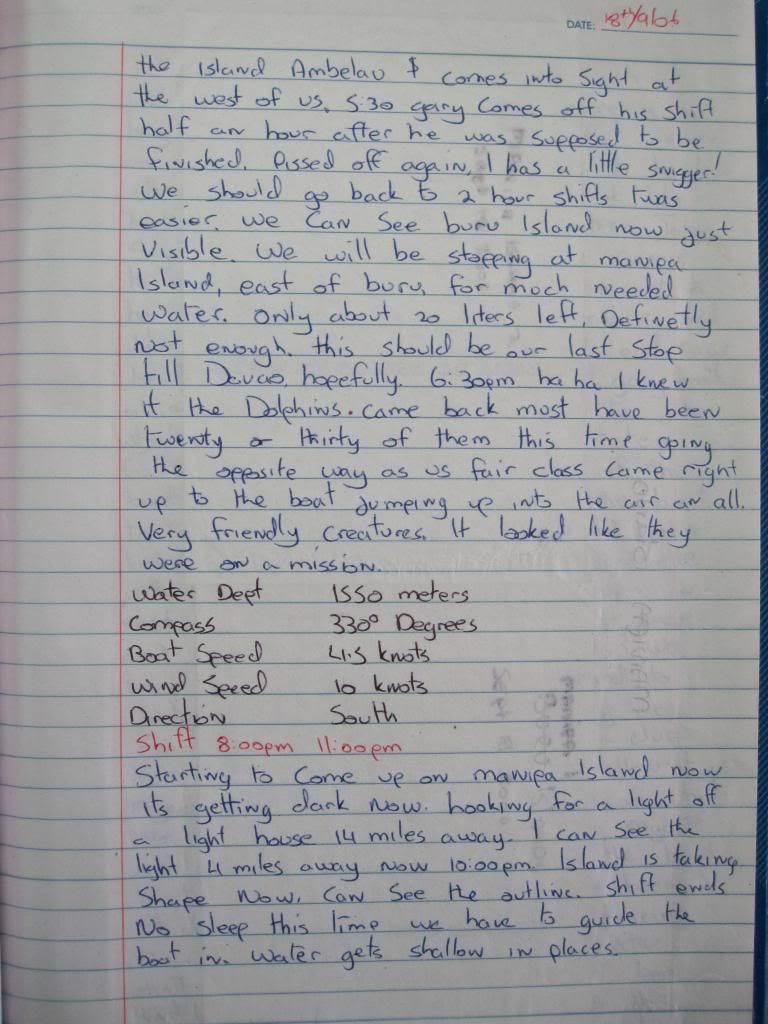 DATE: 18th/9/06
the Island Ambelau $ comes into Sight at
the west of us. 5:30 gary Comes off his shift
half an hour after he was supposed to be
finished. Pissed off again, I has a little snigger!
We should go back to 2 hour shifts twas
easier. we Can See buru Island now just
Visible. We will be stopping at manipa
Island, east of buru, for much needed
Water. Only about 20 liters left. Definetly
not enough. this should be our last Stop
till Davao, hopefully. 6:30pm ha ha I knew
it the Dolphins. Came back most have been
twenty or thirty of them this time going
the opposite way as us fair class Came right
up to the boat Jumping up into the air an all.
Very friendly Creatures. It looked like they
were on a mission.
Water Dept 1550 meters
Compass 330° Degrees
Boat Speed 4.5 knots
Wind Speed 10 knots
Direction South
Shift 8:00pm 11:00pm
Starting to Come up on manipa Island now
its getting dark now. Looking for a light off
a light house 14 miles away. I can See the
light 4 miles away now 10:00pm. Island is taking
Shape Now. Can See the outline. Shift ends
No Sleep this time we have to guide the
boat in. Water gets shallow in places.